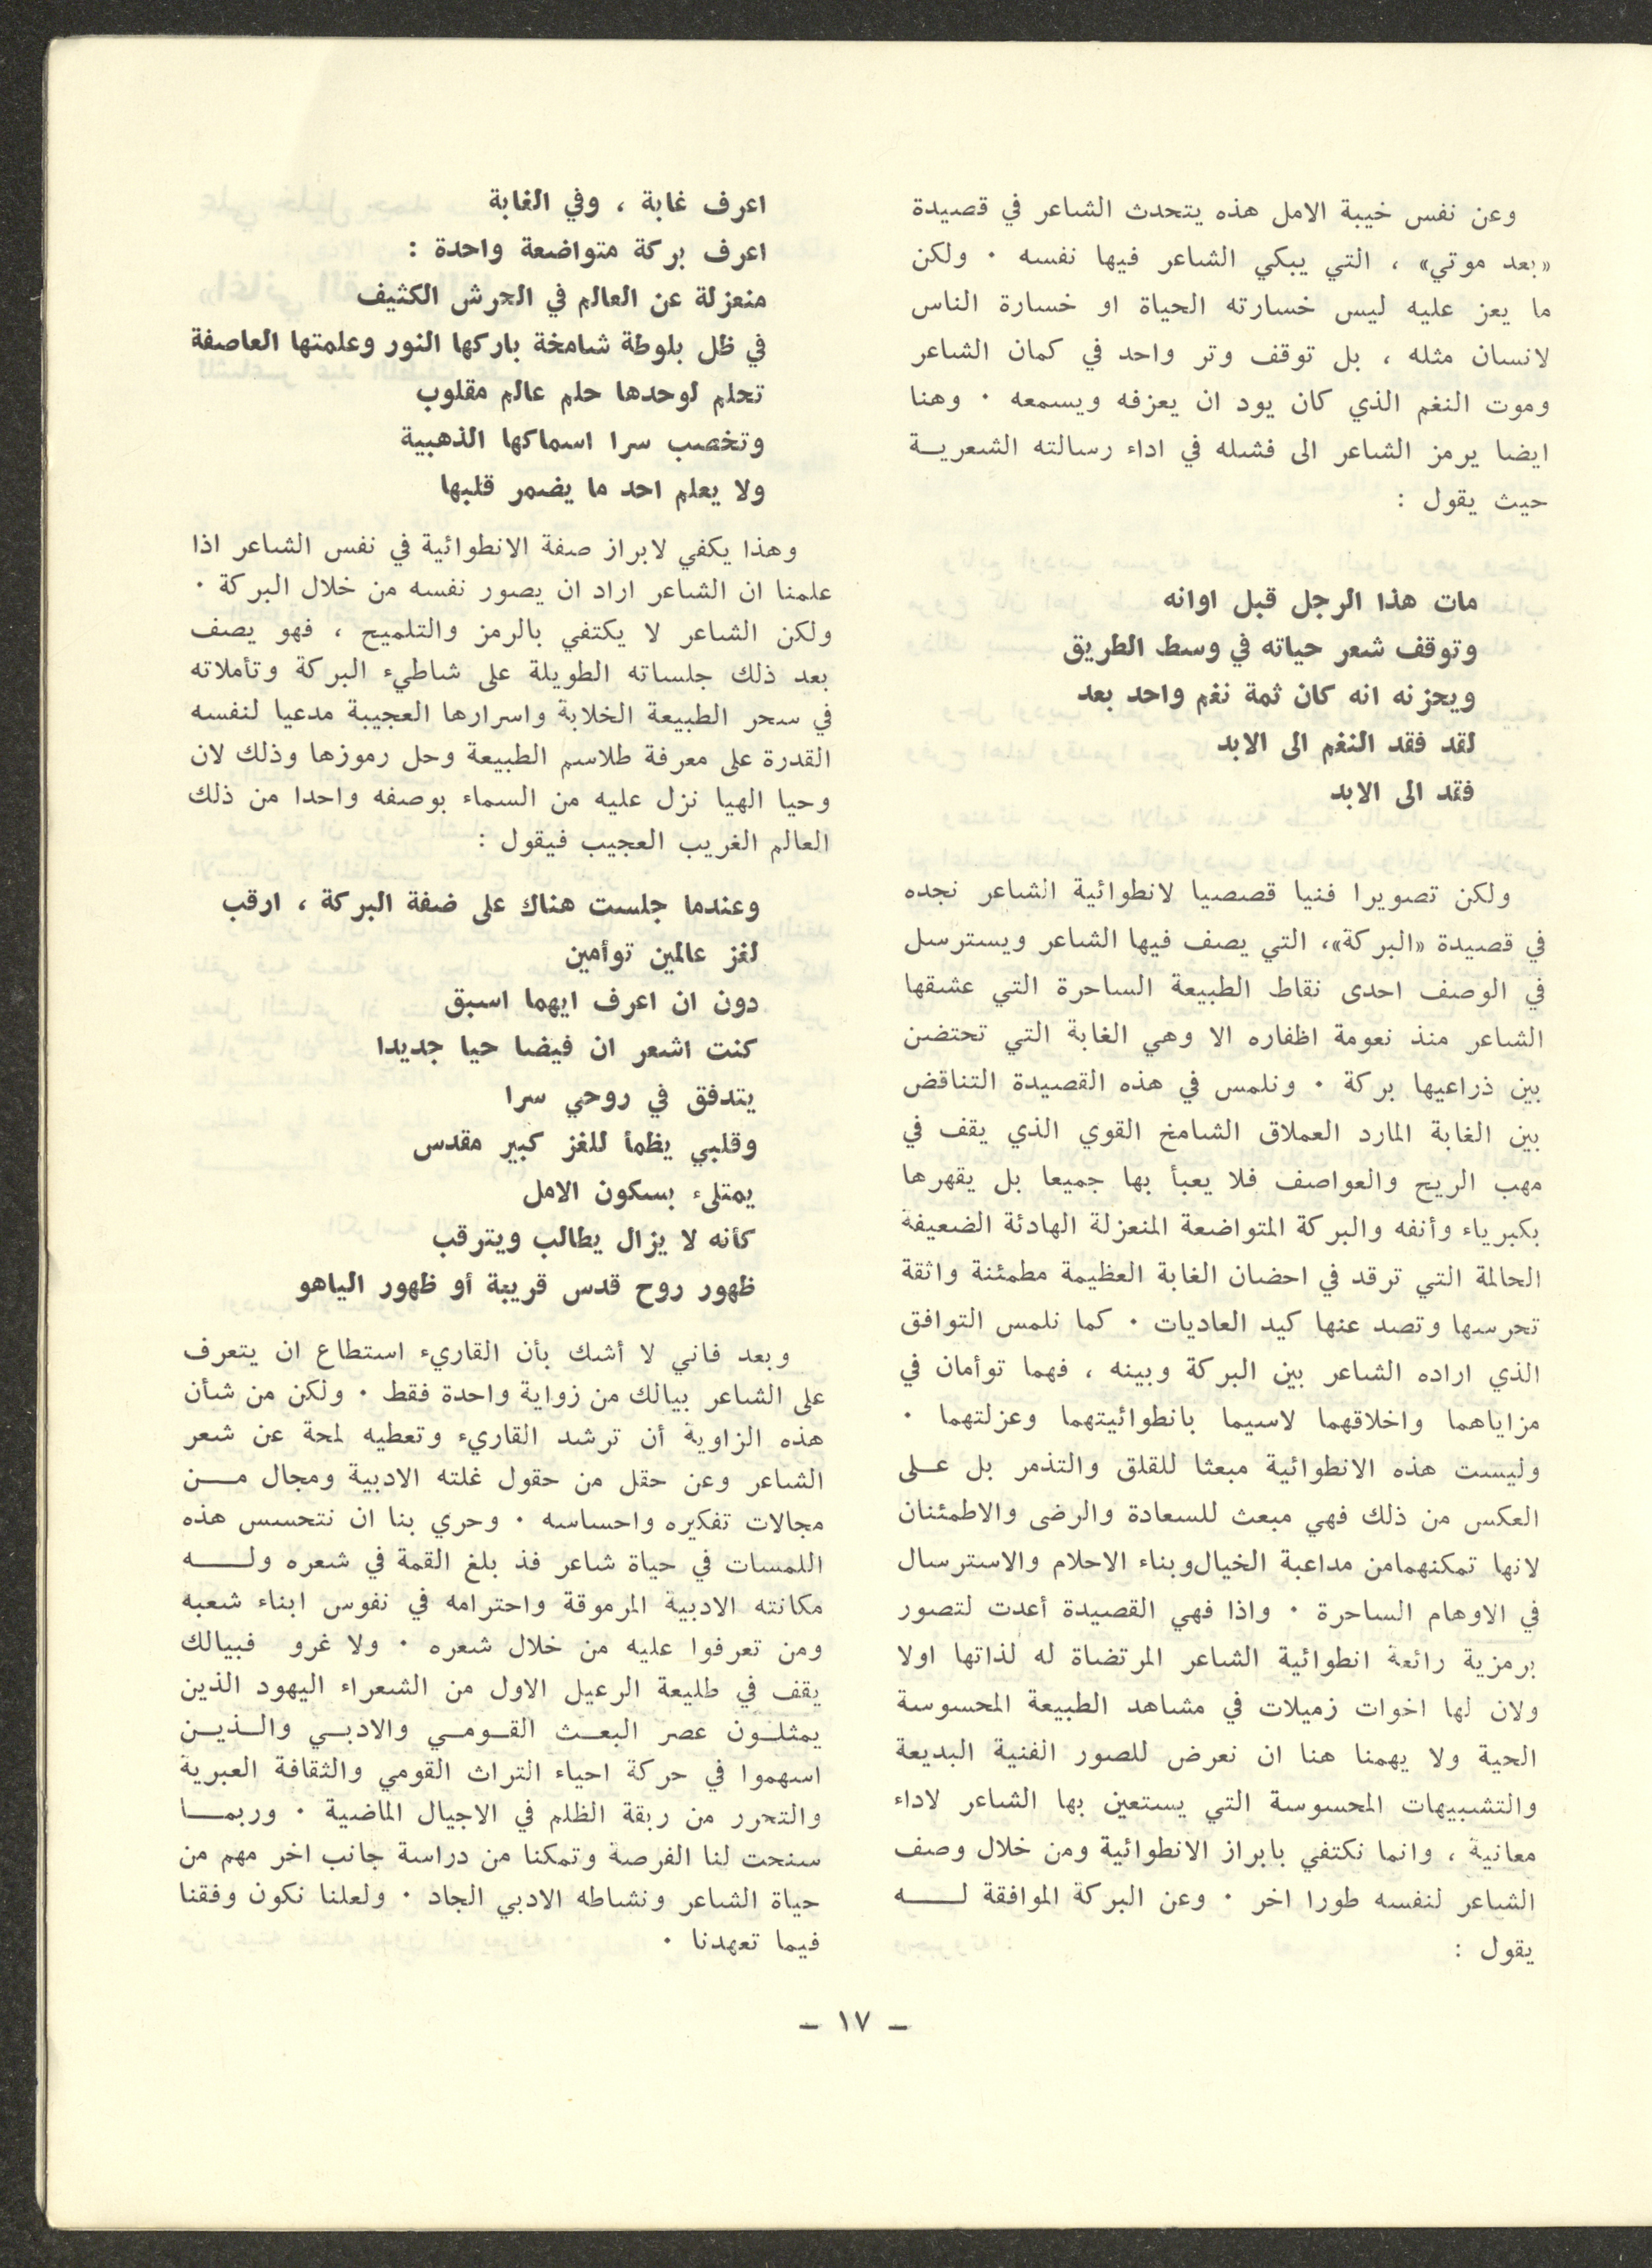 وعن نفس خيبة الامل هذه يتحدث الشاعر في قصيدة
«بعد موتي» ، التي يبكي الشاعر فيها نفسه ٠ ولكن
ما يعز عليه ليس خسارته الحياة او خسارة الناس
لانسان مثله ، بل توقف وتر واحد في كمان الشاعر
وموت النغم الذي كان يود ان يعزفه ويسمعه ٠ وهنا
ايضا يرمز الشاعر الى فشله في اداء رسالته الشعريــة
حيث يقول :
مات هذا الرجل قبل اوانه
وتوقف شعر حياته في وسط الطريق
ويحزنه انه كان ثمة نغم واحد بعد
لقد فقد النغم الى الابد
فقد الى الابد
ولكن تصويرا فنيا قصصيا لانطوائية الشاعر نجده
في قصيدة «البركة»، التي يصف فيها الشاعر ويسترسل
في الوصف احدى نقاط الطبيعة الساحرة التي عشقها
الشاعر منذ نعومة اظفاره الا وهي الغابة التي تحتضن
بين ذراعيها بركة ٠ ونلمس في هذه القصيدة التناقض
بين الغابة المارد العملاق الشامخ القوي الذي يقف في
مهب الريح والعواصف فلا يعبأ بها جميعا بل يقهرها
بكبرياء وأنفه والبركة المتواضعة المنعزلة الهادئة الضعيفة
الحالمة التي ترقد في احضان الغابة العظيمة مطمئنة واثقة
تحرسها وتصد عنها كيد العاديات ٠ كما نلمس التوافق
الذي اراده الشاعر بين البركة وبينه ، فهما توأمان في
مزاياهما واخلاقهما لاسيما بانطوائيتهما وعزلتهما ٠
وليست هذه الانطوائية مبعثا للقلق والتذمر بل عــلى
العكس من ذلك فهي مبعث للسعادة والرضى والاطمئنان
لانها تمكنهمامن مداعبة الخيال‌وبناء الاحلام والاسترسال
في الاوهام الساحرة ٠ واذا فهي القصيدة أعدت لتصور
برمزية رائعة انطوائية الشاعر المرتضاة له لذاتها اولا
ولان لها اخوات زميلات في مشاهد الطبيعة المحسوسة
الحية ولا يهمنا هنا ان نعرض للصور الفنية البديعة
والتشبيهات المحسوسة التي يستعين بها الشاعر لاداء
معانية ، وانما نكتفي بابراز الانطوائية ومن خلال وصف
الشاعر لنفسه طورا اخر ٠ وعن البركة الموافقة لــــه
يقول :
اعرف غابة ، وفي الغابة
اعرف بركة متواضعة واحدة :
منعزلة عن العالم في الحرش الكثيف
في ظل بلوطة شامخة باركها النور وعلمتها العاصفة
تحلم لوحدها حلم عالم مقلوب
وتخصب سرا اسماكها الذهبية
ولا يعلم احد ما يضمر قلبها
وهذا يكفي لابراز صفة الانطوائية في نفس الشاعر اذا
علمنا ان الشاعر اراد ان يصور نفسه من خلال البركة ٠
ولكن الشاعر لا يكتفي بالرمز والتلميح ، فهو يصف
بعد ذلك جلساته الطويلة على شاطيء البركة وتأملاته
في سحر الطبيعة الخلابة واسرارها العجيبة مدعيا لنفسه
القدرة على معرفة طلاسم الطبيعة وحل رموزها وذلك لان
وحيا الهيا نزل عليه من السماء بوصفه واحدا من ذلك
العالم الغريب العجيب فيقول :
وعندما جلست هناك على ضفة البركة ، ارقب
لغز عالمين توأمين
دون ان اعرف ايهما اسبق
كنت اشعر ان فيضا حيا جديدا
يتدفق في روحي سرا
وقلبي يظمأ للغز كبير مقدس
يمتلىء بسكون الامل
كأنه لا يزال يطالب ويترقب
ظهور روح قدس قريبة أو ظهور الياهو
وبعد فاني لا أشك بأن القاريء استطاع ان يتعرف
على الشاعر بيالك من زواية واحدة فقط ٠ ولكن من شأن
هذه الزاوية أن ترشد القاريء وتعطيه لمحة عن شعر
الشاعر وعن حقل من حقول غلته الادبية ومجال مــن
مجالات تفكيره واحساسه ٠ وحري بنا ان نتحسس هذه
اللمسات في حياة شاعر فذ بلغ القمة في شعره ولــــه
مكانته الادبية المرموقة واحترامه في نفوس ابناء شعبه
ومن تعرفوا عليه من خلال شعره ٠ ولا غرو فبيالك
يقف في طليعة الرعيل الاول من الشعراء اليهود الذين
يمثلــون عصر البعــث القــومــي والادبــي والــذيــن
اسهموا في حركة احياء التراث القومي والثقافة العبرية
والتحرر من ربقة الظلم في الاجيال الماضية ٠ وربمــــا
سنحت لنا الفرصة وتمكنا من دراسة جانب اخر مهم من
حياة الشاعر ونشاطه الادبي الجاد ٠ ولعلنا نكون وفقنا
فيما تعهدنا ٠
– ١٧ –